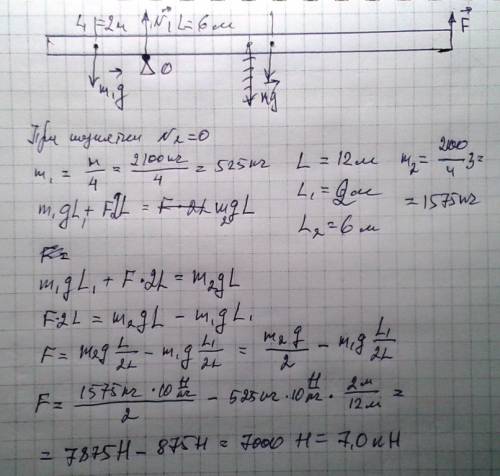 L₁=2м N⃗₁ L=6м F⃗
O
m₁g⃗ mg⃗
При поднятии N₂=0
m₁ = m/4 = 2100кг/4 = 525кг L = 12м m₂ = 2100/4 · 3 =
m₁gL₁ + F2L = F·2L m₂gL L₁ = 2м = 1575кг
L₂ = 6м
F=
m₁gL₁ + F·2L = m₂gL
F·2L = m₂gL − m₁gL₁
F = m₂g L/2L − m₁g L₁/2L = m₂g/2 − m₁g L₁/2L
F = 1575кг·10 Н/кг / 2 − 525кг·10 Н/кг · 2м/12м =
= 7875Н − 875Н = 7000 Н = 7,0 кН